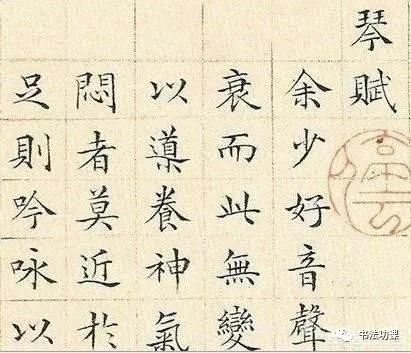 琴賦
余少好音聲
衰而此無變
以導養神氣
悶者莫近於
足則吟咏以
书法功课